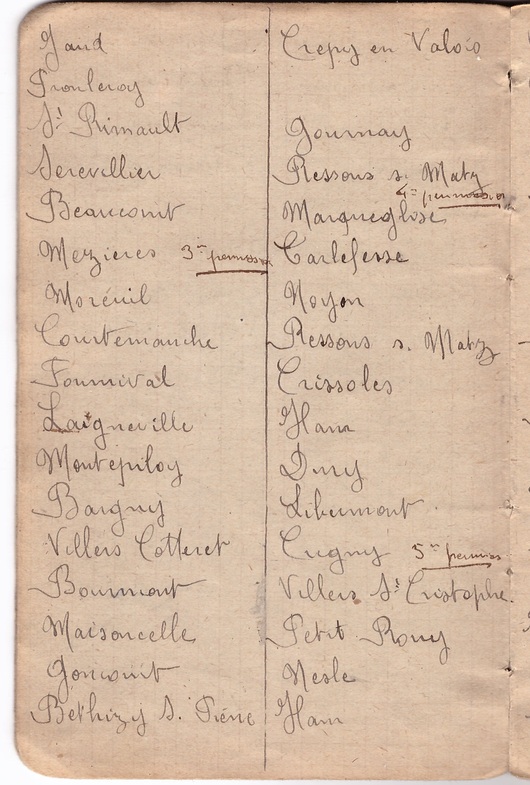 Gand
Fronleroy
St Rimault
Serevillier
Beaucourt
Mezieres 3me permission
Moreuil
Courtemanche
Fournival
Laigneville
Montepiloy
Bargny
Villers Cotteret
Bourmont
Maisoncelle
Goncourt
Bethizy S. Pierre
Crepy en Valois
Gournay
Ressons s. Matz
4me permission
Marqueglise
Carlefesse
Noyon
Ressons s. Matz
Crissoles
Ham
Dury
Libermont
Cugny 5me permis
Villers St Cristophe
Petit Rouy
Nesle
Ham